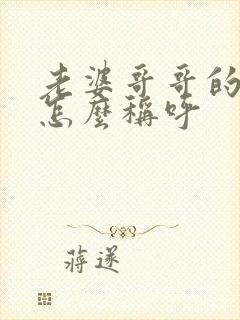 老婆哥哥的
怎麼稱呼
蔣遂